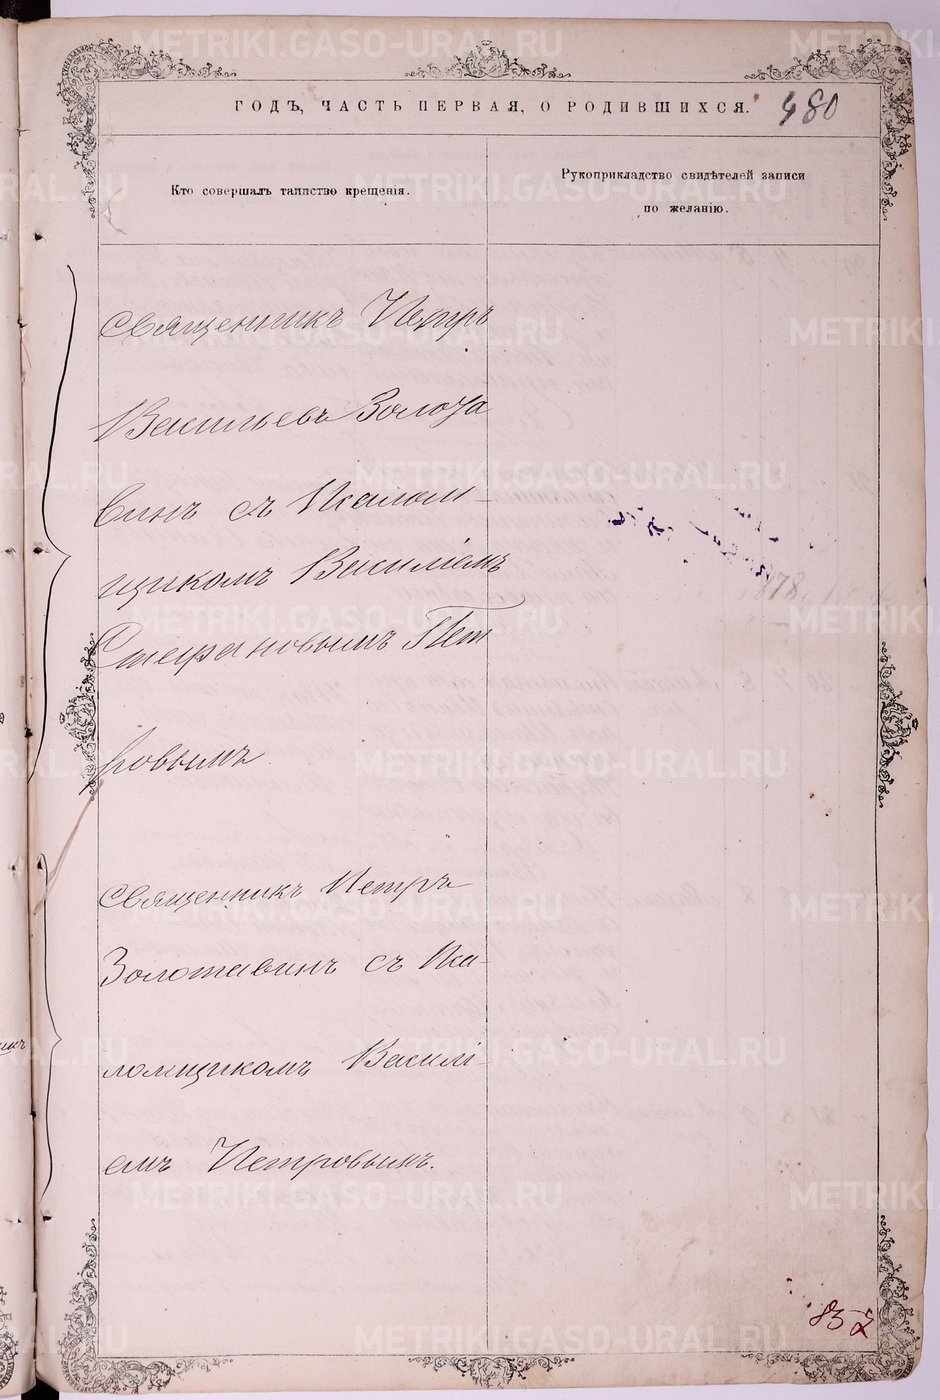 ГОДЪ, ЧАСТЬ ПЕРВАЯ, О РОДИВШИХСЯ.
480
Кто совершалъ таинство крещенія.
Рукоприкладство свидѣтелей записи
по желанію.
Священникъ Петръ
Васильевъ Золота
винъ съ Псалом-
щикомъ Василіемъ
Стефановымъ Пет
ровымъ
Священникъ Петръ
Золотавинъ съ Пса-
ломщикомъ Васили-
емъ Петровымъ.
832
METRIKI.GASO-URAL.RU